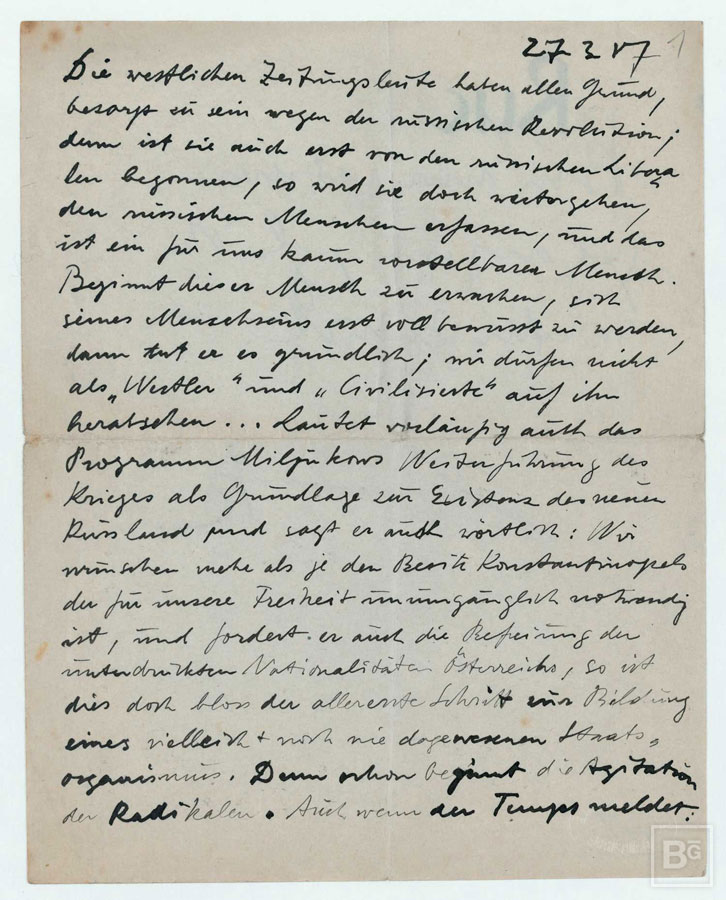 27 3 17 1
Die westlichen Zeitungsleute haben allen Grund,
besorgt zu sein wegen der russischen Revolution;
denn ist sie auch erst von den russischen Libera„
len begonnen, so wird sie doch weitergehen,
den russischen Menschen erfassen, und das
ist ein für uns kaum vorstellbarer Mensch.
Beginnt dieser Mensch zu erwachen, sich
seines Menschseins erst voll bewusst zu werden,
dann tut er es gründlich; wir dürfen nicht
als „Westler“ und „Civilisierte“ auf ihn
herabsehen... Lautet vorläufig auch das
Programm Miljukows Weiterführung des
Krieges als Grundlage zur Existenz des neuen
Russland und sagt er auch wörtlich: Wir
wünschen mehr als je den Besitz Konstantinopels
der für unsere Freiheit unumgänglich notwendig
ist, und fordert er auch die Befreiung der
unterdrückten Nationalitäten Österreichs, so ist
dies doch bloss der allererste Schritt zur Bildung
eines vielleicht noch nie dagewesenen Staats„
organismus. Denn schon beginnt die Agitation
der Radikalen. Auch wenn der Temps meldet:
BG